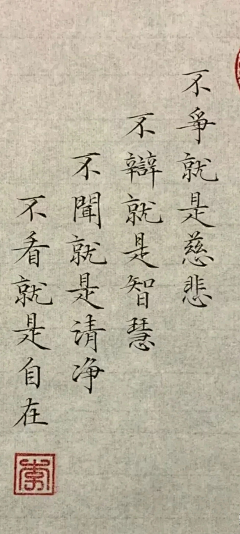 不爭就是慈悲
不辯就是智慧
不聞就是清净
不看就是自在